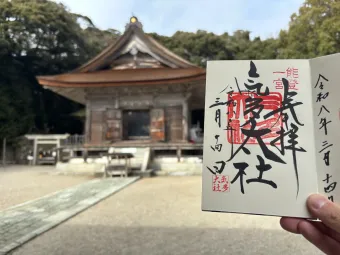 令和八年三月十四日
奉拝
能登
一宮
氣多大社
三月十四日
氣多
大社